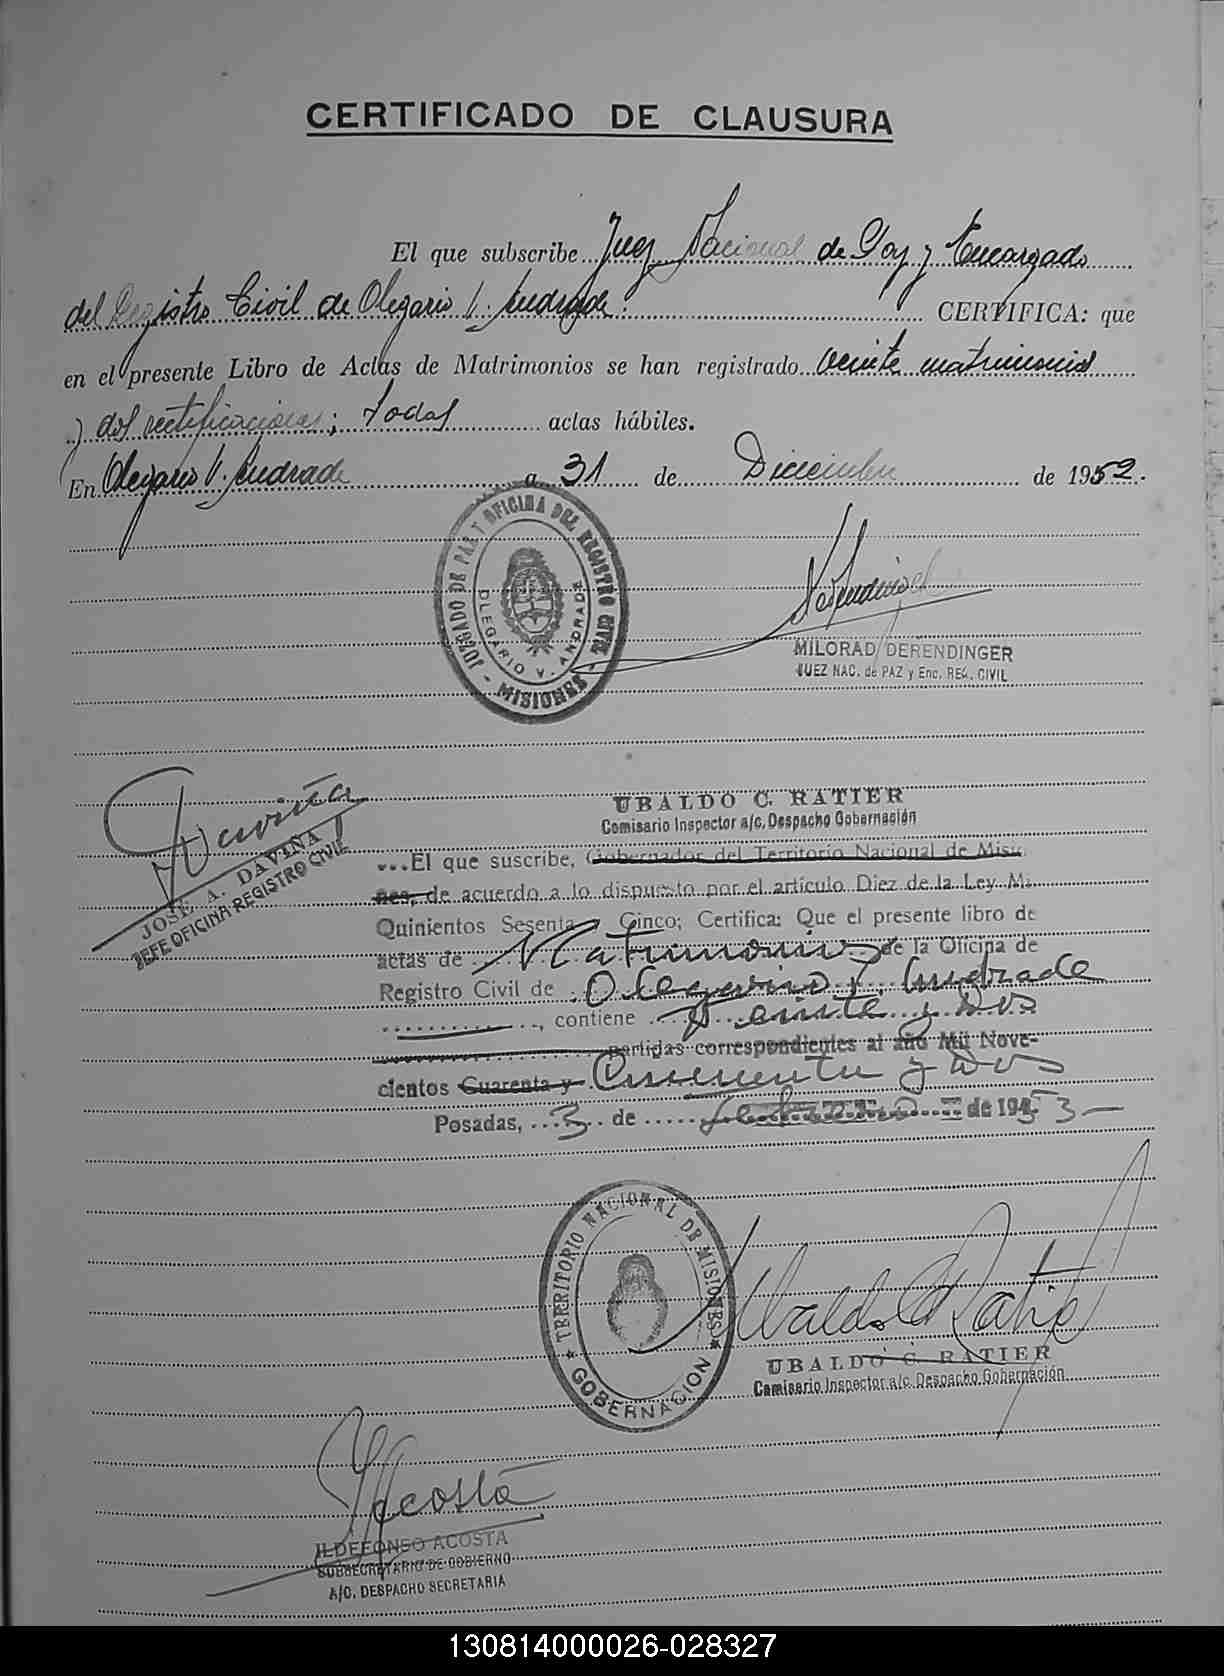 CERTIFICADO DE CLAUSURA
El que subscribe Juez Nacional de Paz y Encargado
del Registro Civil de Olegario V. Andrade. CERTIFICA: que
en el presente Libro de Actas de Matrimonios se han registrado veinte matrimonios
y dos rectificaciones; todas actas hábiles.
En Olegario V. Andrade a 31 de Diciembre de 1952.
JUZGADO DE PAZ Y OFICINA DEL REGISTRO CIVIL
OLEGARIO V. ANDRADE
- MISIONES -
MILORAD DERENDINGER
JUEZ NAC. de PAZ y Enc. REG. CIVIL
Daviña
JOSE A. DAVIÑA
JEFE OFICINA REGISTRO CIVIL
UBALDO C. RATIER
Comisario Inspector a/c. Despacho Gobernación
...El que suscribe, Gobernador del Territorio Nacional de Misio
nes, de acuerdo a lo dispuesto por el artículo Diez de la Ley Mil
Quinientos Sesenta y Cinco; Certifica: Que el presente libro de
actas de Matrimonios de la Oficina de
Registro Civil de Olegario V. Andrade
, contiene Veinte y Dos
partidas correspondientes al año Mil Nove-
cientos Cuarenta y Cincuenta y Dos
Posadas, 3 de de 1953-
TERRITORIO NACIONAL DE MISIONES
GOBERNACION
Ubaldo C Ratier
UBALDO C. RATIER
Comisario Inspector a/c. Despacho Gobernación
Acosta
ILDEFONSO ACOSTA
SUBSECRETARIO DE GOBIERNO
A/C. DESPACHO SECRETARIA
130814000026-028327